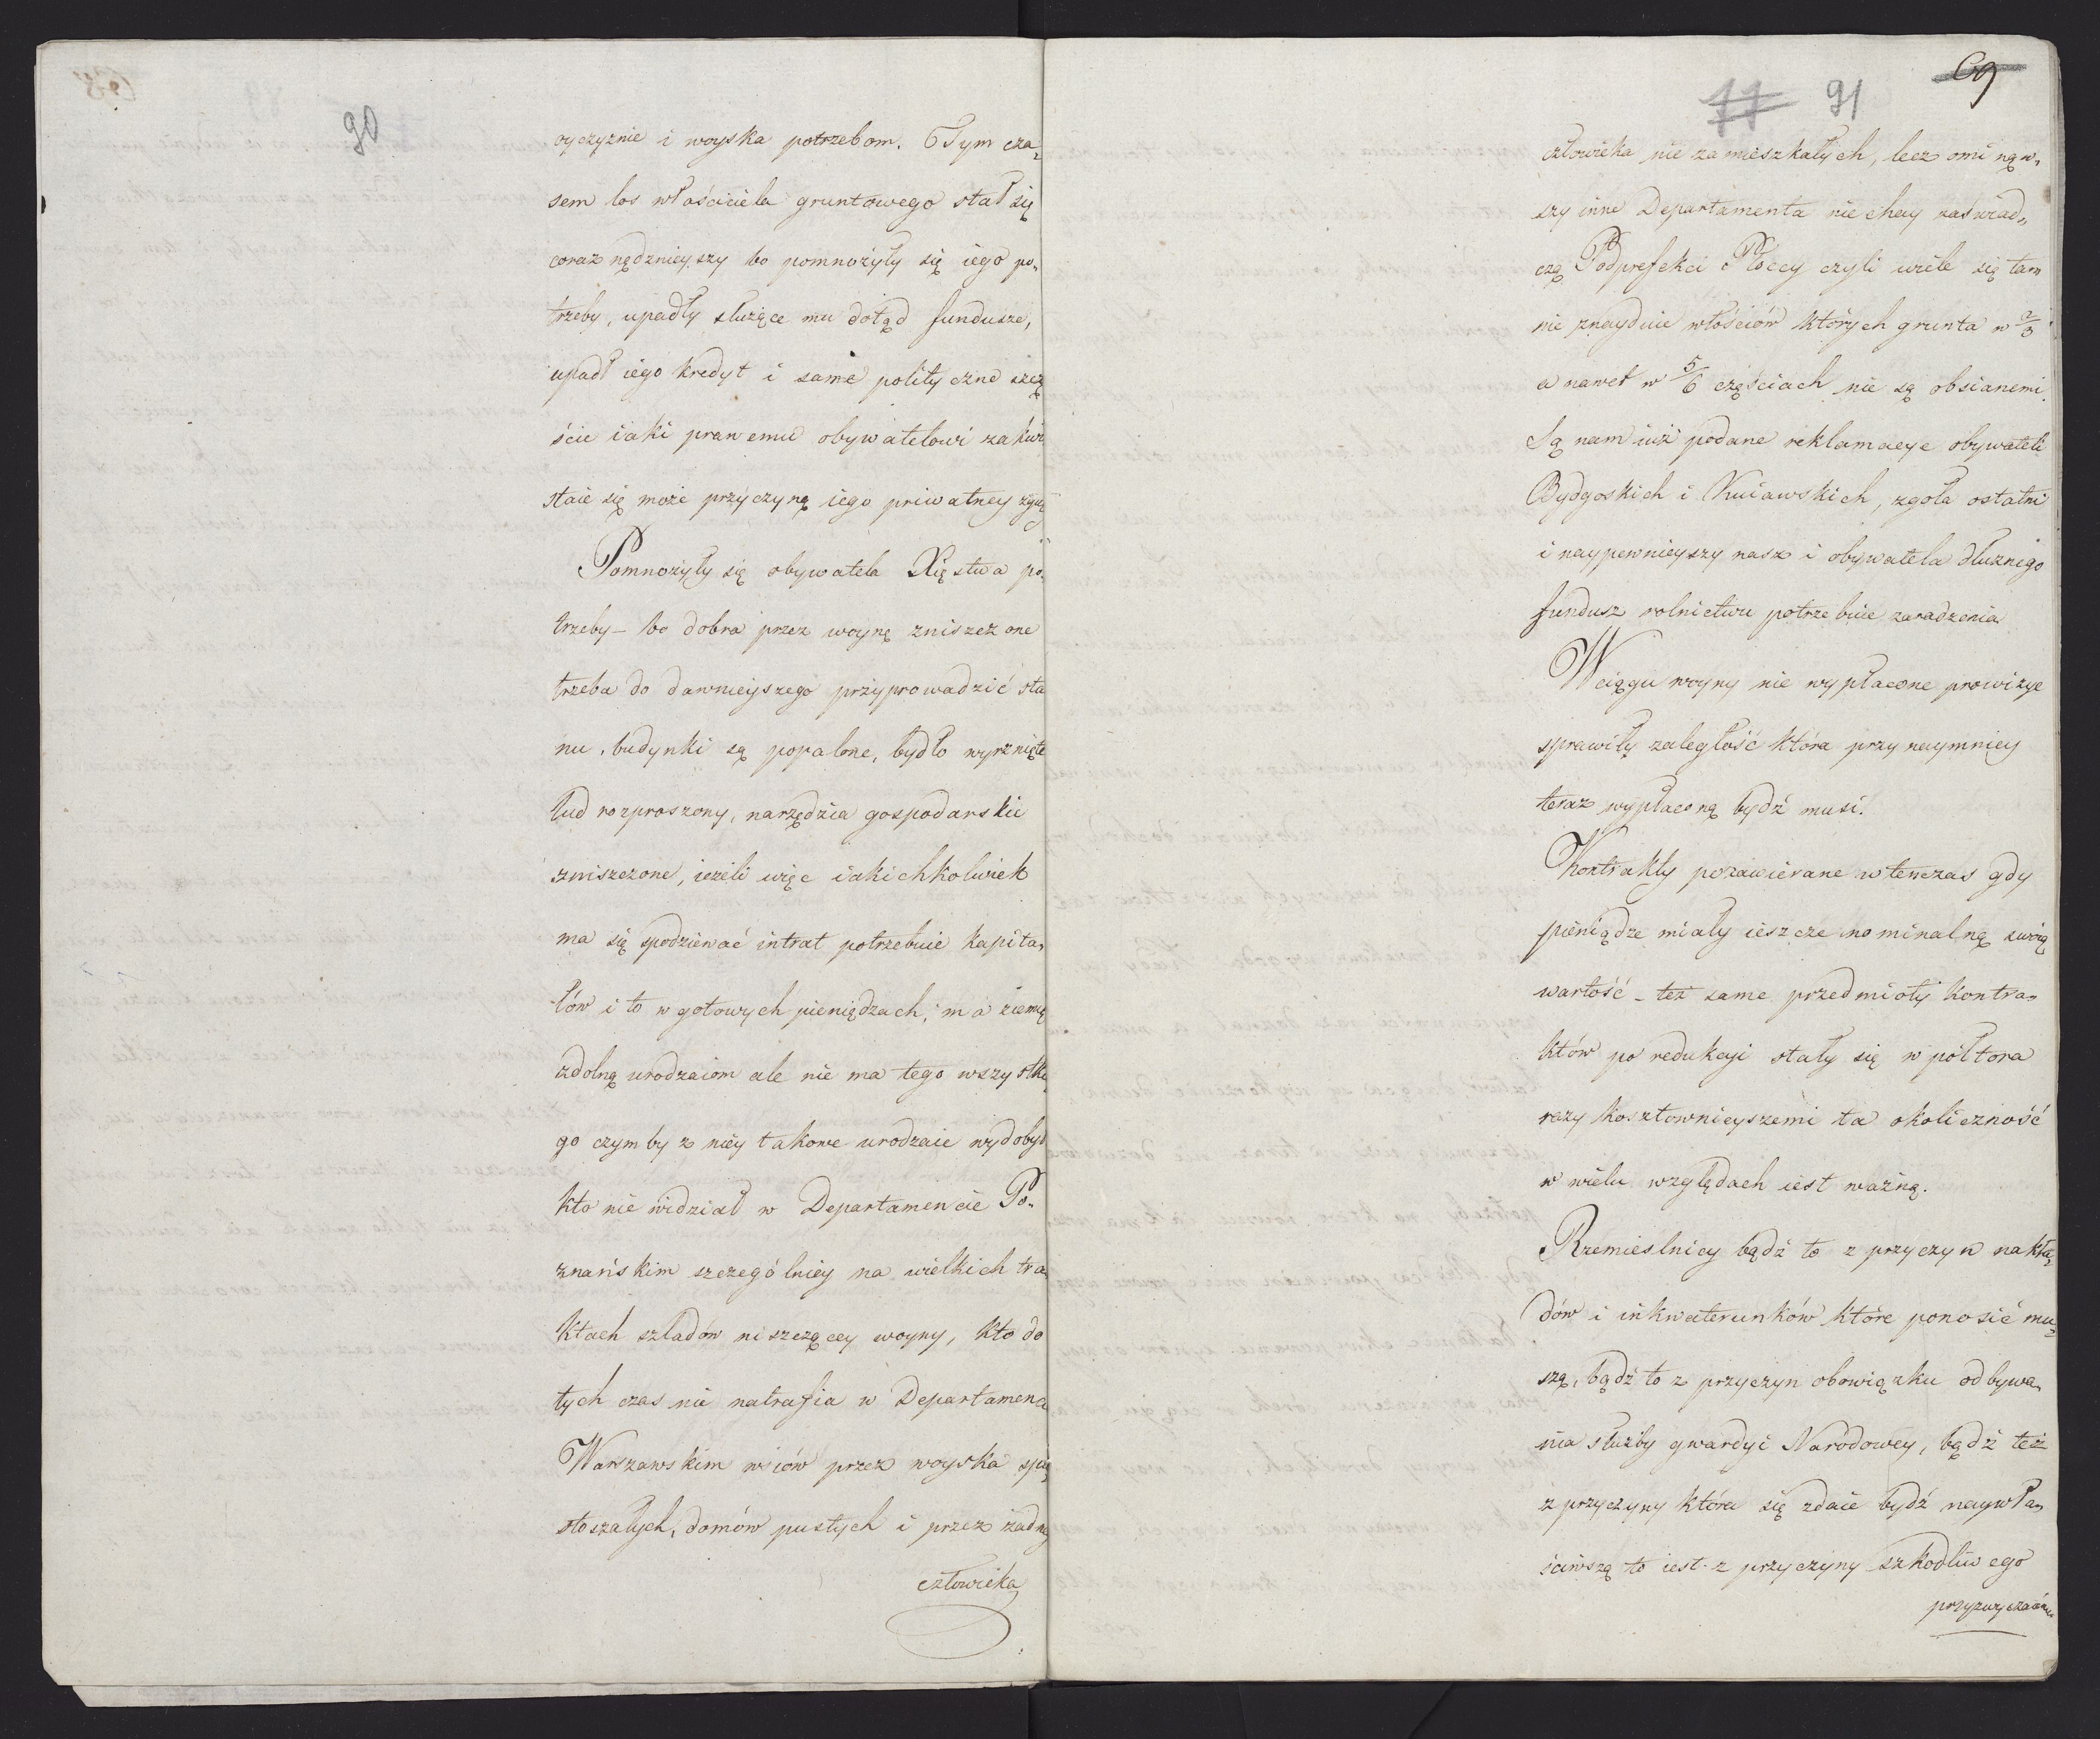 90
oyczyznie i woyska potrzebom. Tym cza=
sem los właściciela gruntowego stał się
coraz nędznieyszy bo pomnożyły się iego po„
trzeby, upadły służące mu dotąd fundusze,
upadł iego kredyt i same polityczne szczę
ście iaki prawemu obywatelowi zakwi
staie się może przyczyną iego priwatney zgu
Pomnożyły się obywatela Xięstwa po„
trzeby – bo dobra przez woynę zniszczone
trzeba do dawnieyszego przyprowadzić sta
nu, budynki są popalone, bydło wyrznięte
lud rozproszony, narzędzia gospodarskie
zniszczone, ieżeli więc iakichkolwiek
ma się spodziewać intrat potrzebuie kapita„
łów i to w gotowych pieniądzach, ma ziemię
zdolną urodzaiom ale nie ma tego wszystkie
go czymby z niey takowe urodzaie wydobył
kto nie widział w Departamencie Po„
znańskim szczególniey na wielkich tra
ktach szladów niszczącey woyny, kto do
tych czas nie natrafia w Departamenci
Warszawskim wsiów przez woyska spu
stoszałych, domów pustych i przez żadne
człowieka
69
77 91
człowieka nie zamieszkałych, lecz ominąw„
szy inne Departamenta niechay zaświad„
czą Podprefekci Płoccy czyli wiele się tam
nie znayduie włościów których grunta w 2/3
a nawet w 5/6 częściach nie są obsianemi.
Są nam iuż podane reklamacye obywateli
Bydgoskich i Kuiawskich, zgoła ostatni
i naypewnieyszy nasz i obywatela dłużnego
fundusz rolnictwu potrzebuie zaradzenia
W ciągu woyny nie wypłacone prowizye
sprawiły zaległość która przynaymniey
teraz wypłaconą bydź musi.
Kontrakty pozawierane wtenczas gdy
pieniądze miały ieszcze nominalną swoią
wartość – też same przedmioty kontra„
któw po redukcyi stały się w półtora
razy kosztownieyszemi ta okoliczność
w wielu względach iest ważną.
Rzemieslnicy bądź to z przyczyn nakła„
dów i inkwaterunków które ponosić mu„
szą, bądź to z przyczyn obowiązku odbywa„
nia służby gwardyi Narodowey, bądź też
z przyczyny która się zdaie bydź naywła„
ściwszą to iest z przyczyny szkodliwego
przyzwyczaienia